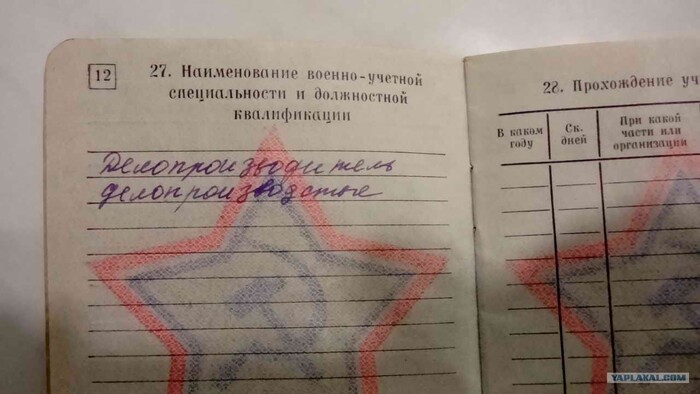 12
27. Наименование военно-учетной
специальности и должностной
квалификации
Делопроизводитель
делопроизводстве
28. Прохождение уч
В каком
году
Ск.
дней
При какой
части или
организации
YAPLAKAL.COM